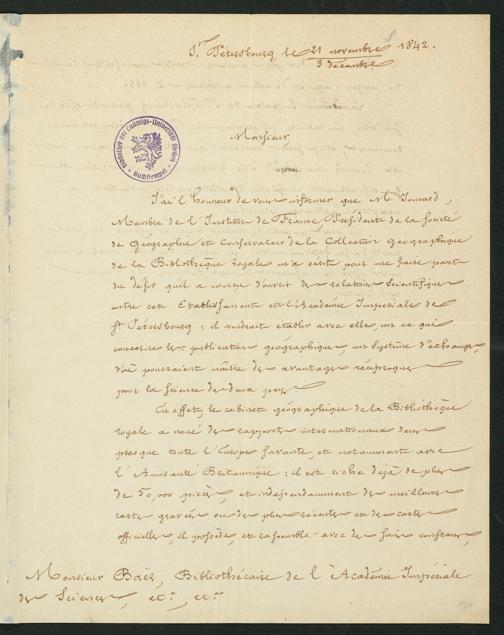 St Pétersbourg le 21 novembre 1842.
3 décembre
Bibliothek der Ludwigs-Universität Giessen
Monsieur,
J'ai l'honneur de vous informer que M. Jomard,
Membre de l'Institut de France, Président de la Société
de Géographie et Conservateur de la Collection géographique
de la Bibliothèque royale m'a écrit pour me faire part
du désir qu'il a conçu d'ouvrir des relations Scientifiques
entre cet Etablissement et l'Académie Impériale de
St Pétersbourg ; il voudrait établir avec elle, en ce qui
concerne les publications géographiques, un Système d'échanges,
d'où pourraient naître des avantages réciproques
pour la Science des deux pays.
En effet, le cabinet géographique de la Bibliothèque
royale a noué des rapports internationaux dans
presque toute l'Europe Savante, et notamment avec
l'Amirauté Britannique ; il est riche déjà de plus
de 50,000 pièces, et indépendamment des meilleures
cartes gravées ou des plus récentes et des cartes
officielles, il possède, et rassemble avec des soins constans,
Monsieur Baër, Bibliothécaire de l'Académie Impériale
des Sciences, etc., etc.